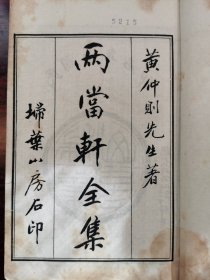 5215
黄仲則先生著
兩當軒全集
埽葉山房石印